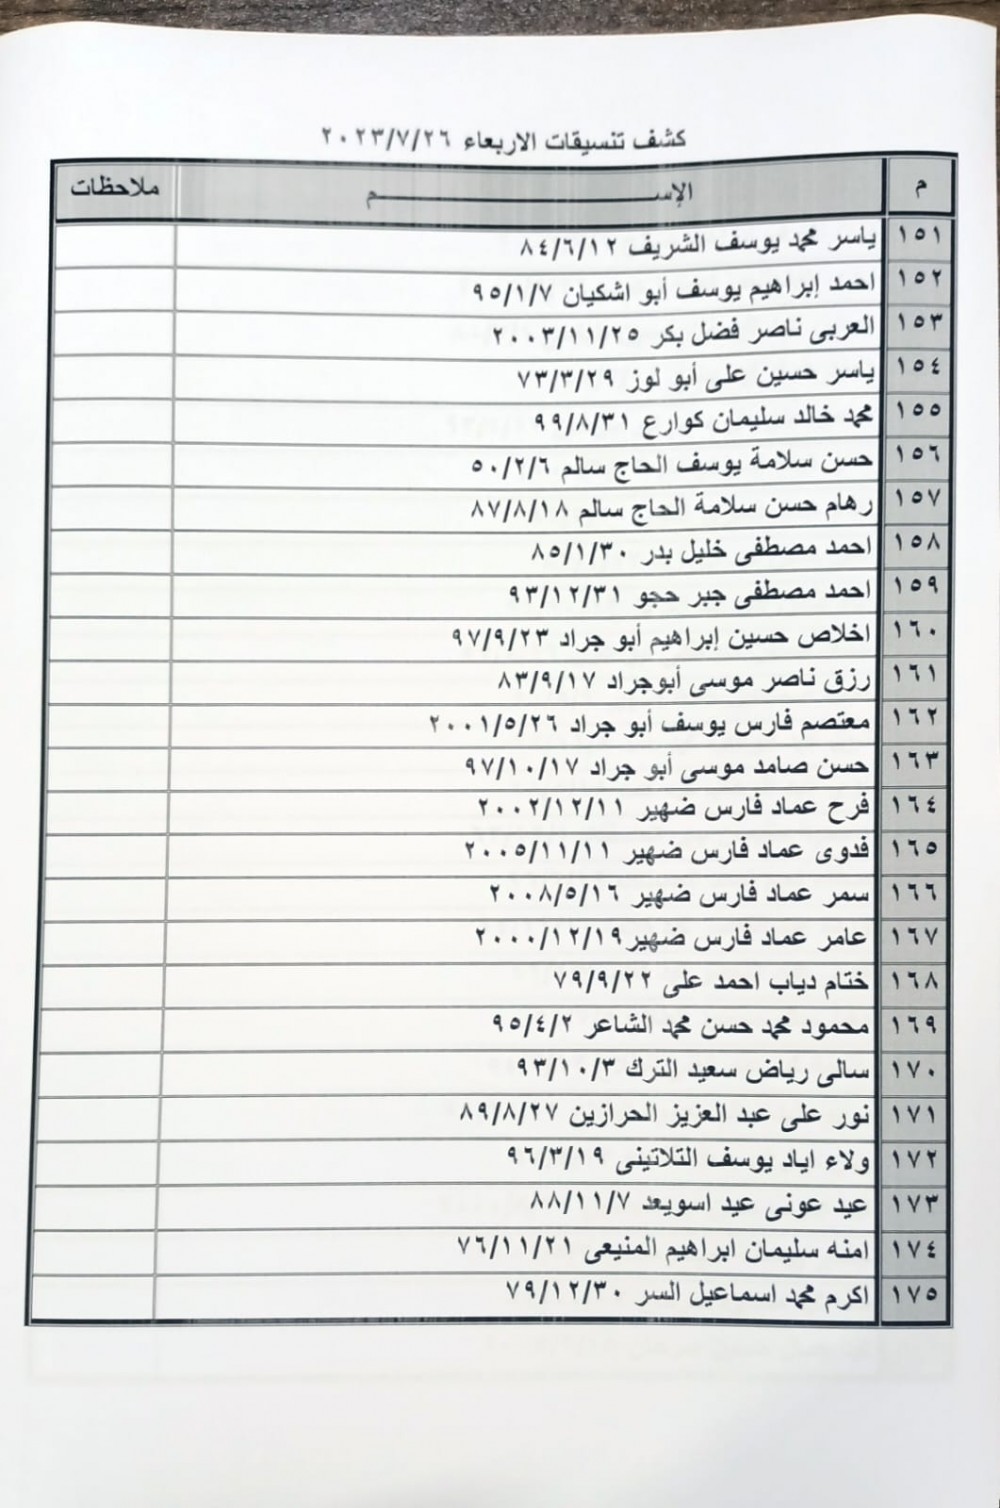 كشف تنسيقات الاربعاء ٢٠٢٣/٧/٢٦
م الإســـــــــم ملاحظات
١٥١ ياسر محمد يوسف الشريف ٨٤/٦/١٢
١٥٢ احمد إبراهيم يوسف أبو اشكيان ٩٥/١/٧
١٥٣ العربى ناصر فضل بكر ٢٠٠٣/١١/٢٥
١٥٤ ياسر حسين على أبو لوز ٧٣/٣/٢٩
١٥٥ محمد خالد سليمان كوارع ٩٩/٨/٣١
١٥٦ حسن سلامة يوسف الحاج سالم ٥٠/٢/٦
١٥٧ رهام حسن سلامة الحاج سالم ٨٧/٨/١٨
١٥٨ احمد مصطفى خليل بدر ٨٥/١/٣٠
١٥٩ احمد مصطفى جبر حجو ٩٣/١٢/٣١
١٦٠ اخلاص حسين إبراهيم أبو جراد ٩٧/٩/٢٣
١٦١ رزق ناصر موسى أبوجراد ٨٣/٩/١٧
١٦٢ معتصم فارس يوسف أبو جراد ٢٠٠١/٥/٢٦
١٦٣ حسن صامد موسى أبو جراد ٩٧/١٠/١٧
١٦٤ فرح عماد فارس ضهير ٢٠٠٢/١٢/١١
١٦٥ فدوى عماد فارس ضهير ٢٠٠٥/١١/١١
١٦٦ سمر عماد فارس ضهير ٢٠٠٨/٥/١٦
١٦٧ عامر عماد فارس ضهير٢٠٠٠/١٢/١٩
١٦٨ ختام دياب احمد على ٧٩/٩/٢٢
١٦٩ محمود محمد حسن محمد الشاعر ٩٥/٤/٢
١٧٠ سالى رياض سعيد الترك ٩٣/١٠/٣
١٧١ نور على عبد العزيز الحرازين ٨٩/٨/٢٧
١٧٢ ولاء اياد يوسف التلاتينى ٩٦/٣/١٩
١٧٣ عيد عونى عيد اسويعد ٨٨/١١/٧
١٧٤ امنه سليمان ابراهيم المنيعى ٧٦/١١/٢١
١٧٥ اكرم محمد اسماعيل السر ٧٩/١٢/٣٠